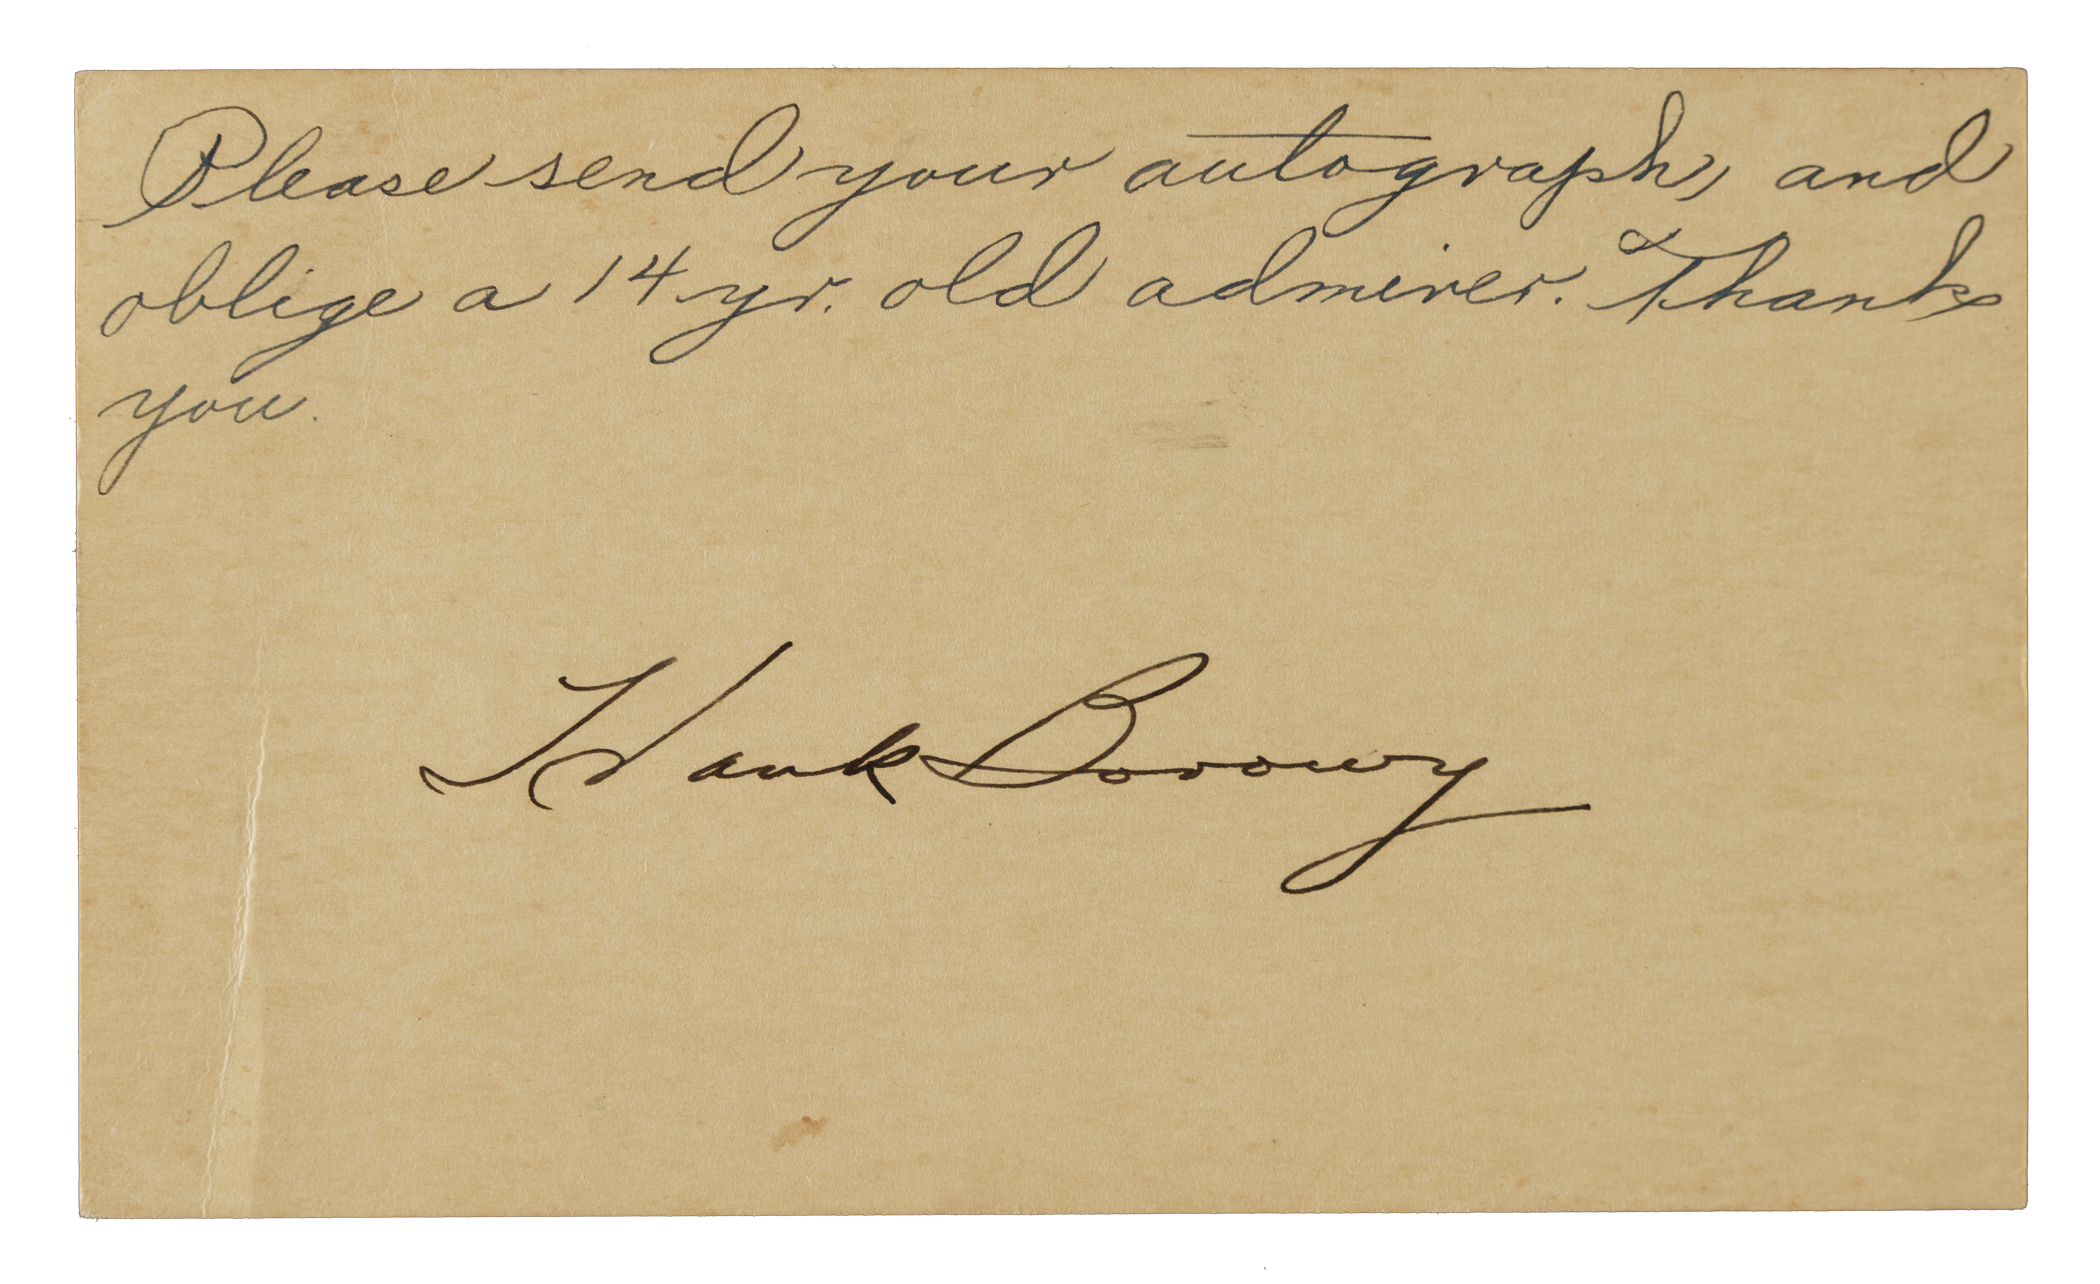 Please send your autograph, and
oblige a 14 yr. old admirer. Thanks
you.
Hank Borowy